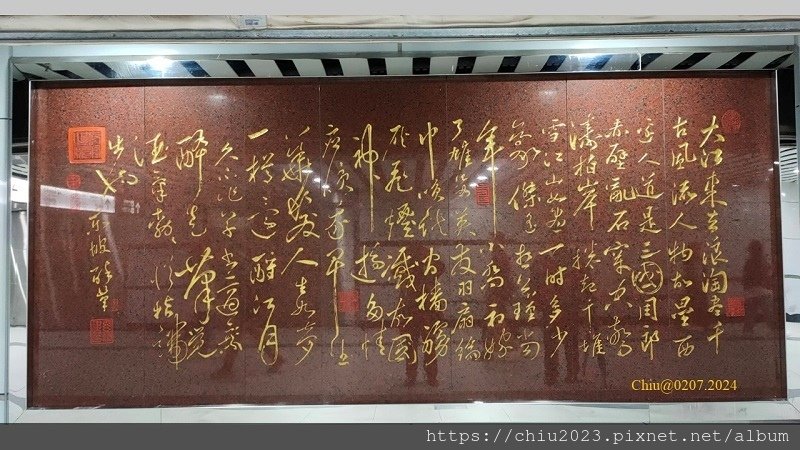 大江東去浪淘盡千
古風流人物故壘西
邊人道是三國周郎
赤壁亂石穿空驚
濤拍岸捲起千堆
雪江山如畫一時多少
豪傑遙想公瑾當
年小喬初嫁
了雄姿英發羽扇綸
巾談笑間檣櫓
灰飛煙滅故國
神遊多情
應笑我早生
華髮人生如夢
一樽還酹江月
久不作草書適乘
醉走筆覺
酒氣勃勃從指端
出也
東坡醉筆
Chiu@0207.2024
https://chiu2023.pixnet.net/album